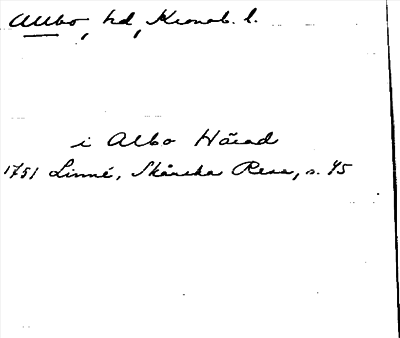 Allbo, hd, Kronob. l.
i Albo Härad
1751 Linné, Skånska Resa, s. 45